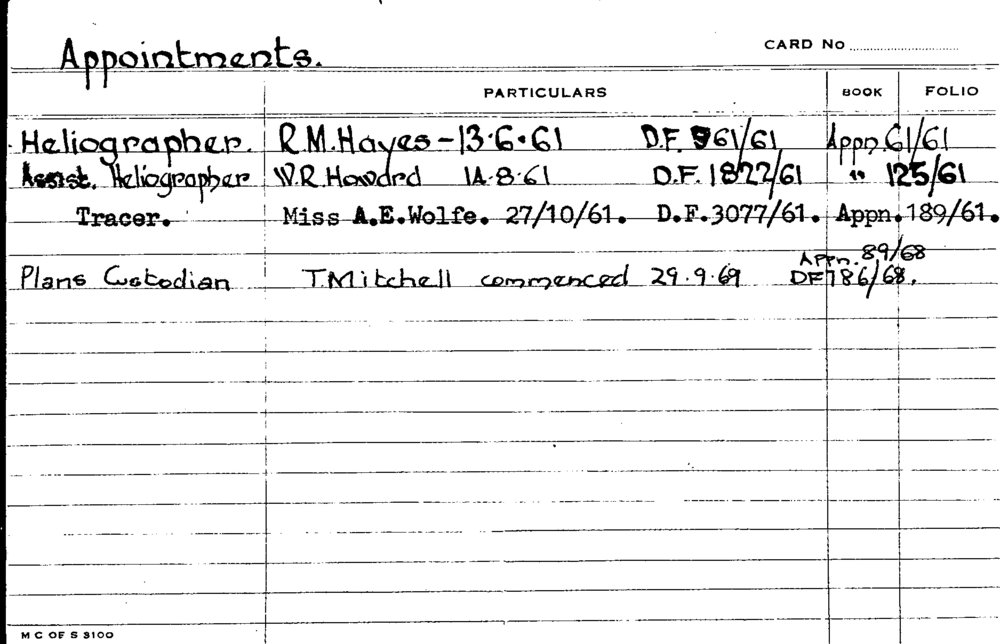 Appointments.
CARD No
PARTICULARS BOOK FOLIO
Heliographer. R.M. Hayes - 13.6.61 D.F. 961/61 Appn. 61/61
Assist. Heliographer W.R. Howard 14.8.61 D.F. 1822/61 " 125/61
Tracer. Miss A.E.Wolfe. 27/10/61. D.F.3077/61. Appn. 189/61.
Appn. 89/68
Plans Custodian T. Mitchell commenced 29.9.69 DF 786/68.
M C OF S 3100